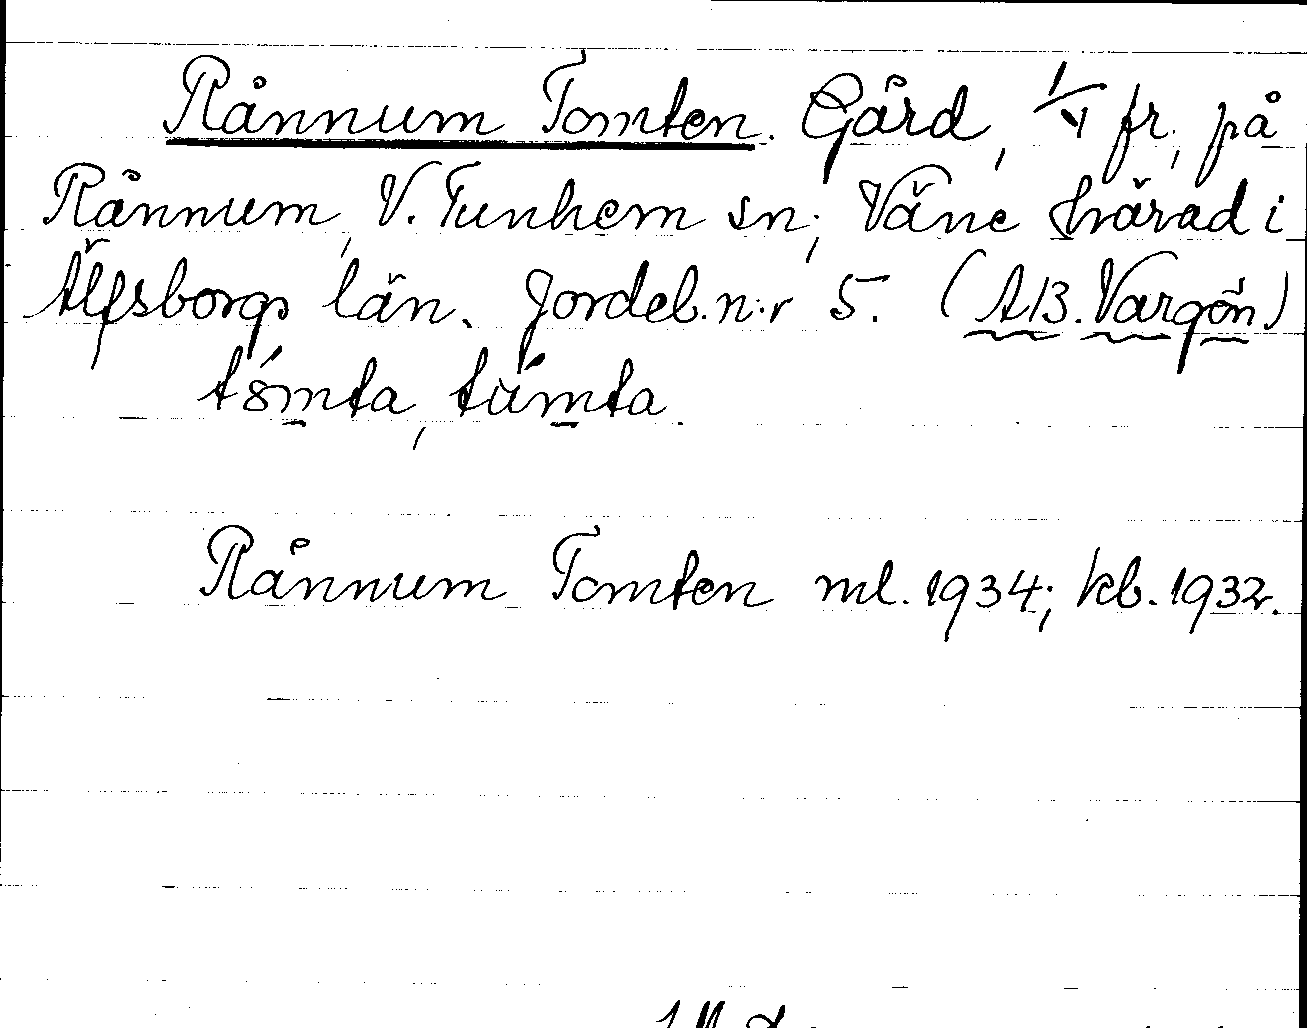 Rånnum Tomten. Gård, 1/4 fr., på
Rånnum, V. Tunhem sn; Väne härad i
Älfsborgs län. Jordeb. n:r 5. (AB. Vargön)
tómta, túmta.
Rånnum Tomten ml. 1934; kb. 1932.